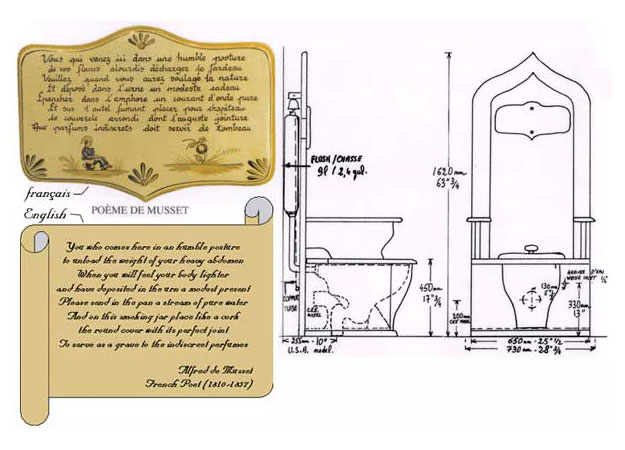 Vous qui venez ici dans une humble posture
de vos flancs alourdis décharger le fardeau
Veuillez quand vous aurez soulagé la nature
Et déposé dans l'urne un modeste cadeau
Epancher dans l'amphore un courant d'onde pure
Et sur l'autel fumant placer pour chapiteau
Le couvercle arrondi dont l'auguste jointure
Aux parfums indiscrets doit servir de tombeau
français
English
POÈME DE MUSSET
You who comes here in an humble posture
to unload the weight of your heavy abdomen
When you will feel your body lighter
and have deposited in the urn a modest present
Please send in the pan a stream of pure water
And on this smoking jar place like a cork
the round cover with its perfect joint
To serve as a grave to the indiscreet perfumes
Alfred de Musset
French Poet (1810-1857)
FLUSH/CHASSE
9l / 2,4 gal.
COPPER
TUBE
255mm - 10"
U.S.A. model.
1620mm
63"3/4
450mm
17"3/4
200mm
130mm
5"1/8
330mm
13"
650mm - 25"1/2
730mm - 28"3/4